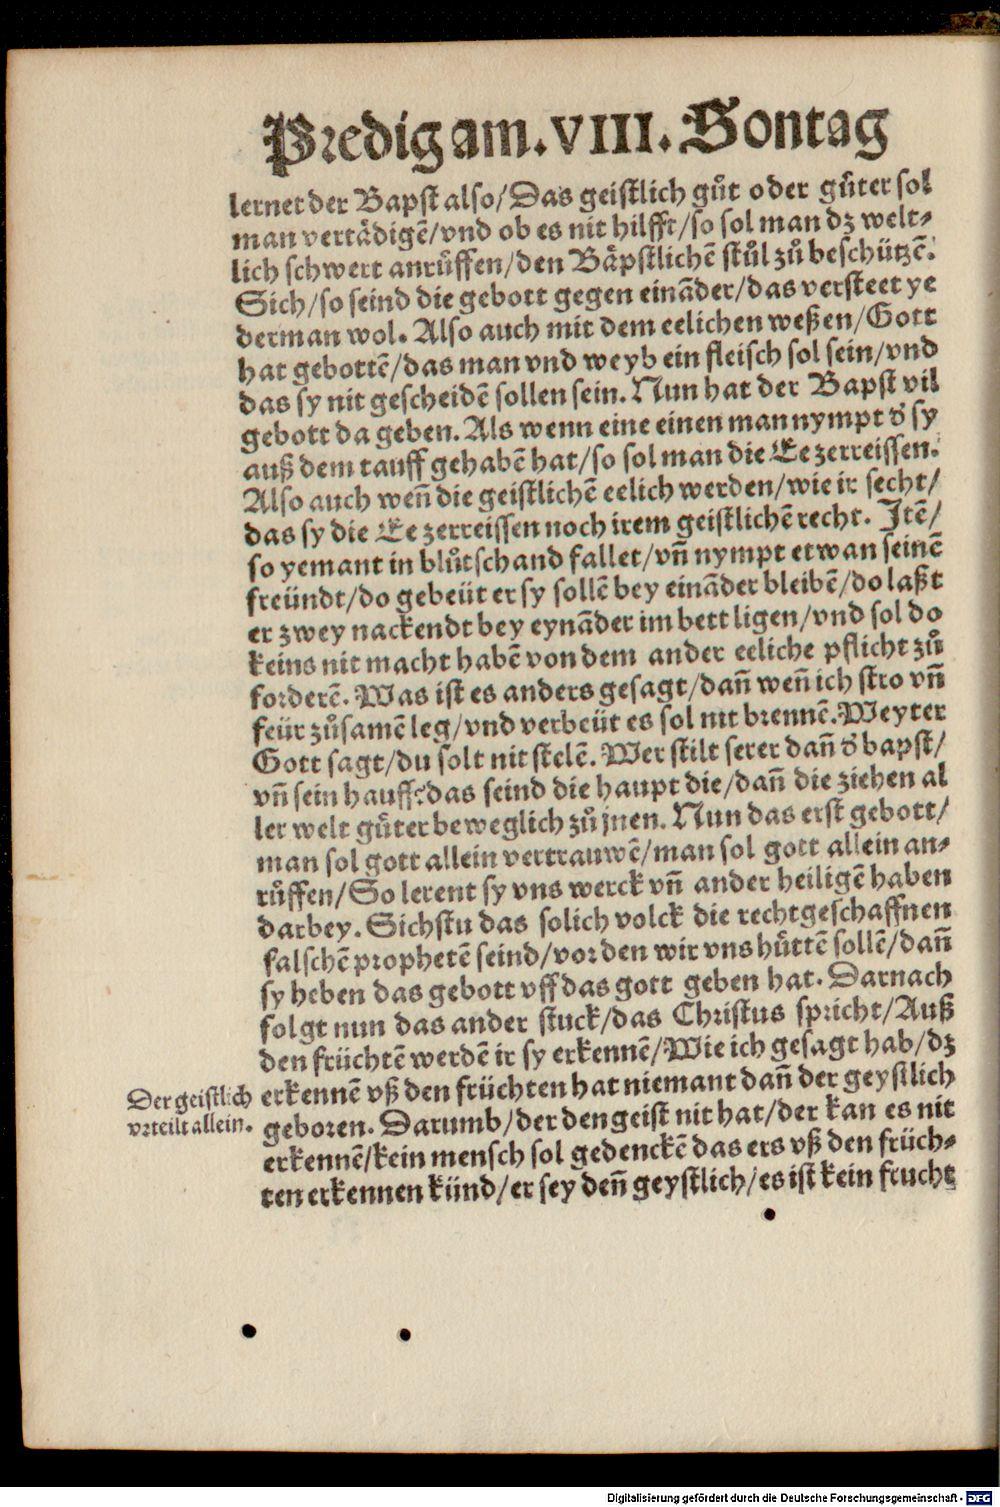 Predig am. VIII. Sontag
lernet der Bapst also/Das geistlich gůt oder gůter sol
man vertådigē/vnd ob es nit hilfft/so sol man dz welt-
lich schwert anrůffen/den Båpstlichē stůl zů beschützē.
Sich/so seind die gebott gegen eināder/das versteet ye
derman wol. Also auch mit dem eelichen weßen/Gott
hat gebottē/das man vnd weyb ein fleisch sol sein/vnd
das sy nit gescheidē sollen sein. Nun hat der Bapst vil
gebott da geben. Als wenn eine einen man nympt d' sy
auß dem tauff gehabē hat/so sol man die Ee zerreissen.
Also auch weñ die geistlichē eelich werden/wie ir secht/
das sy die Ee zerreissen noch irem geistlichē recht. Itē/
so yemant in blůtschand fallet/vñ nympt etwan seinē
freündt/do gebeüt er sy sollē bey eināder bleibē/do laßt
er zwey nackendt bey eynāder im bett ligen/vnd sol do
keins nit macht habē von dem ander eeliche pflicht zů
forderē. Was ist es anders gesagt/dañ weñ ich stro vñ
feür zůsamē leg/vnd verbeüt es sol nit brennē. Weyter
Gott sagt/du solt nit stelē. Wer stilt serer dañ d' bapst/
vñ sein hauff? das seind die haupt die/dañ die ziehen al
ler welt gůter beweglich zů jnen. Nun das erst gebott/
man sol gott allein vertrauwē/man sol gott allein an-
růffen/So lerent sy vns werck vñ ander heiligē haben
darbey. Sichstu das solich volck die rechtgeschaffnen
falschē prophetē seind/vor den wir vns hůttē sollē/dañ
sy heben das gebott vff das gott geben hat. Darnach
folgt nun das ander stuck/das Christus spricht/Auß
den früchtē werdē ir sy erkennē/Wie ich gesagt hab/dz
erkennē vß den früchten hat niemant dañ der geystlich
geboren. Darumb/der den geist nit hat/der kan es nit
erkennē/kein mensch sol gedenckē das ers vß den früch-
ten erkennen künd/er sey deñ geystlich/es ist kein frucht
Der geistlich
vrteilt allein.
Digitalisierung gefördert durch die Deutsche Forschungsgemeinschaft - DFG